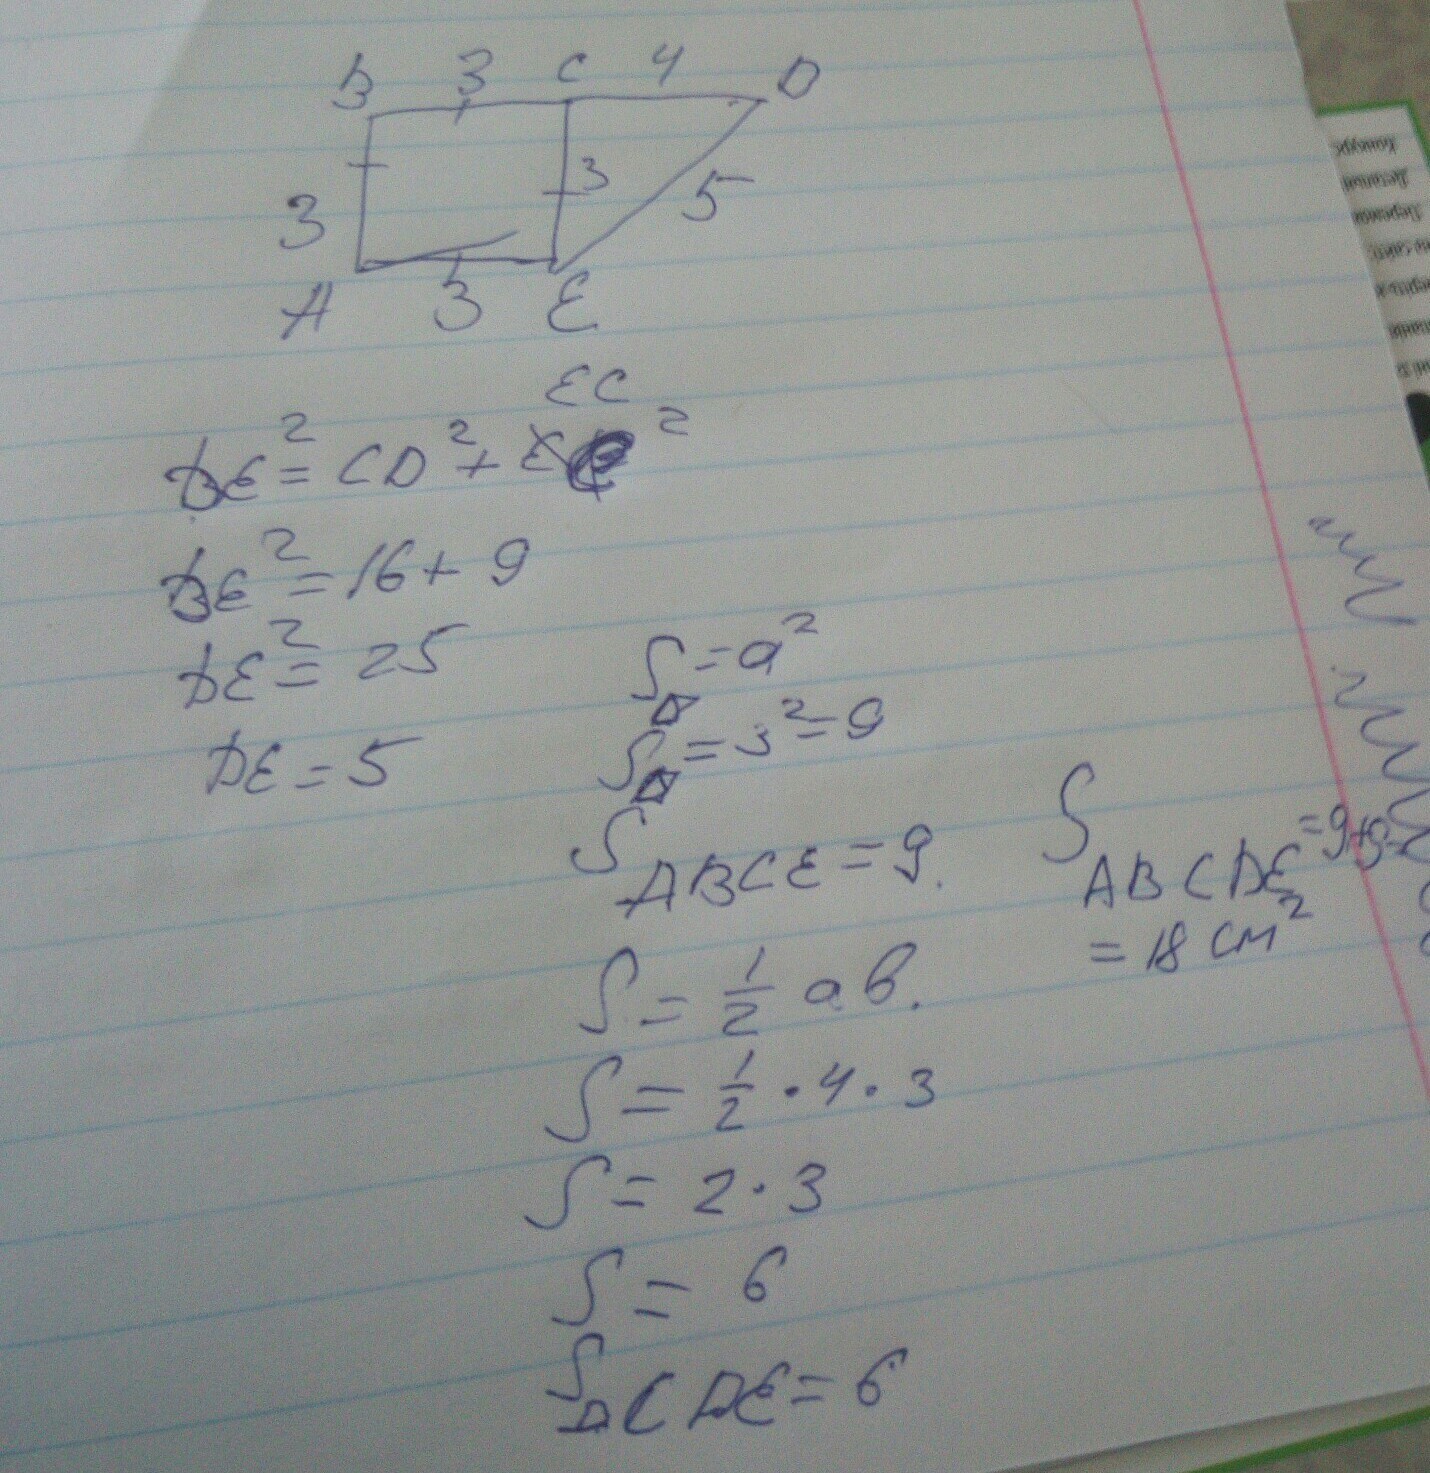 B 3 C 4 D
3 3 5
A 3 E
EC
DE² = CD² +
DE² = 16 + 9
DE² = 25
DE = 5
S = a²
S = 3² = 9
S ABCE = 9.
S = 1/2 ab.
S = 1/2 · 4 · 3
S = 2 · 3
S = 6
S CDE = 6
S ABCDE = 9+9=
= 18 см²